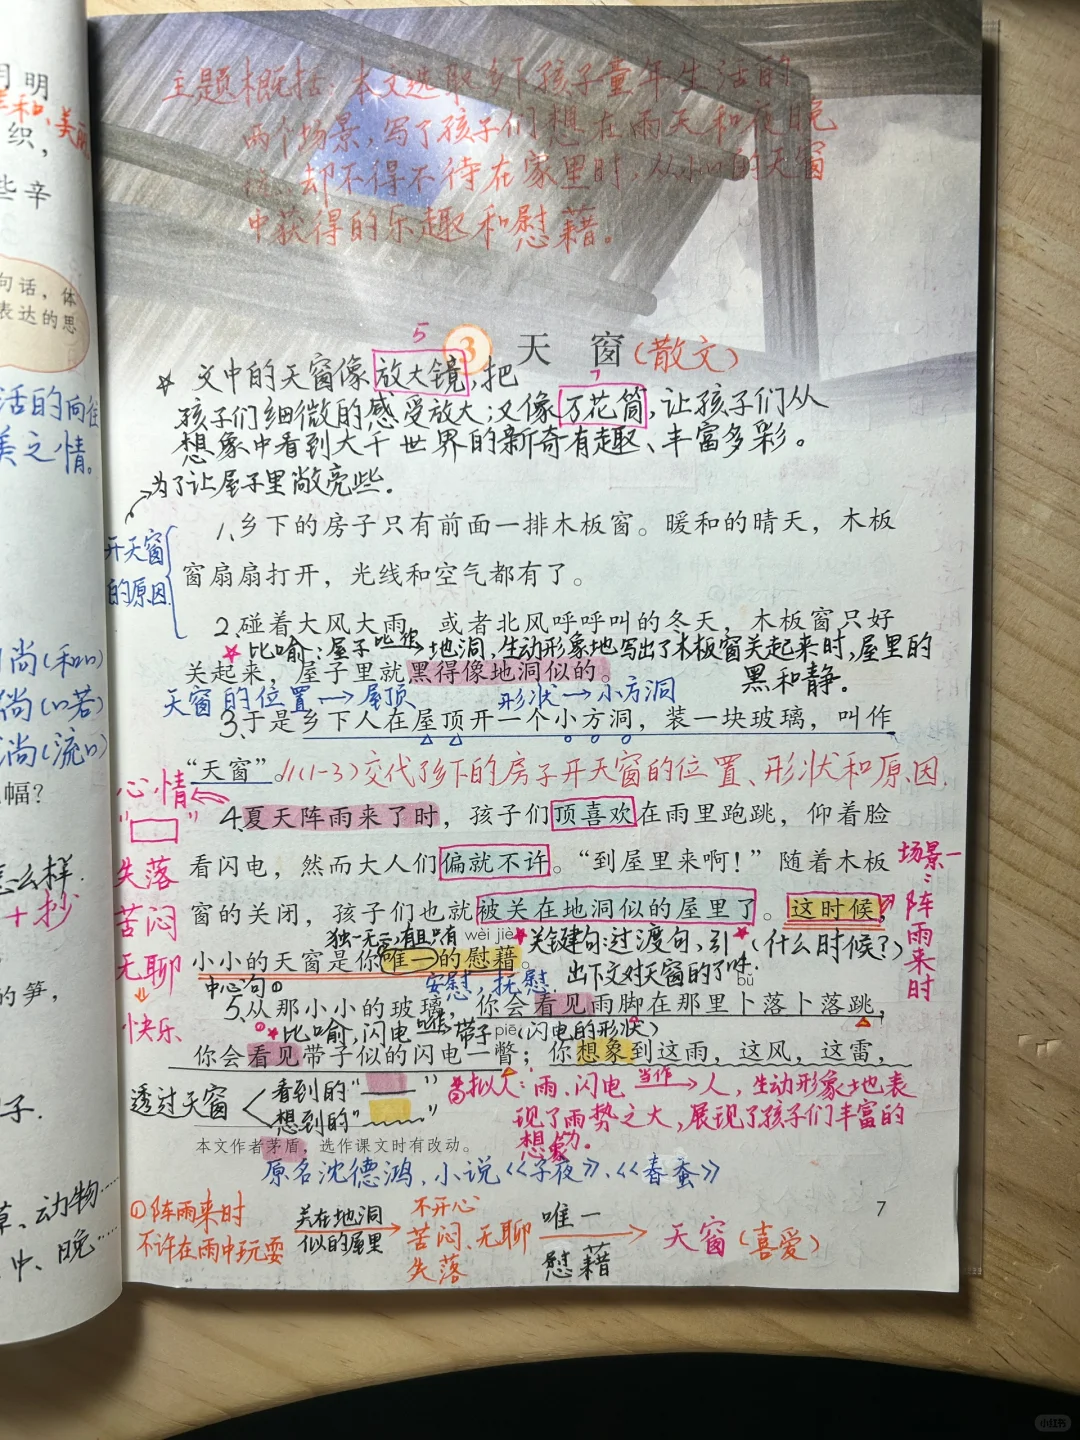 月明
织，
些辛
句话，体
表达的思
活的向往
美之情。
尚(和
倘(
淌(流
幅？
怎么样.
+抄
的笋，
子.
草、动物……
中、晚……
主题概括：本文选取乡下孩子童年生活的
两个场景，写了孩子们想在雨天和夜晚
却不得不待在家里时，从小小的天窗
中获得的乐趣和慰藉。
5
3 天 窗(散文)
☆ 文中的天窗像放大镜，把
孩子们细微的感受放大；又像万花筒，让孩子们从
想象中看到大千世界的新奇有趣、丰富多彩。
为了让屋子里敞亮些.
开天窗
的原因
1、乡下的房子只有前面一排木板窗。暖和的晴天，木板
窗扇扇打开，光线和空气都有了。
2、碰着大风大雨，或者北风呼呼叫的冬天，木板窗只好
★比喻：屋子 比作→地洞，生动形象地写出了木板窗关起来时，屋里的
黑和静.
关起来，屋子里就黑得像地洞似的。
天窗的位置→屋顶 形状→小方洞
3、于是乡下人在屋顶开一个小方洞，装一块玻璃，叫作
“天窗”。 (1-3)交代了乡下的房子开天窗的位置、形状和原因.
心情
“ ”
失落
苦闷
无聊
⇓
快乐
4、夏天阵雨来了时，孩子们顶喜欢在雨里跑跳，仰着脸
看闪电，然而大人们偏就不许。“到屋里来啊！”随着木板
窗的关闭，孩子们也就被关在地洞似的屋里了。这时候，
场景一：阵雨来时
独一无二，有且只有 wèi jiè ★关键句：过渡句，引(什么时候？)
出下文对天窗的
小小的天窗是你唯一的慰藉。
中心句① 安慰，抚慰. bǔ
5、从那小小的玻璃，你会看见雨脚在那里卜落卜落跳，
①★比喻，闪电 带子 piē (闪电的形状)
你会看见带子似的闪电一瞥；你想象到这雨，这风，这雷，
透过天窗 看到的“ ”
想到的“ ”
拟人：雨、闪电 当作→人，生动形象地表
现了雨势之大，展现了孩子们丰富的
想象力.
本文作者茅盾，选作课文时有改动。
原名沈德鸿，小说《子夜》、《春蚕》
7
①阵雨来时
不许在雨中玩耍
关在地洞
似的屋里
不开心
苦闷、无聊
失落
唯一
慰藉
天窗(喜爱)
小红书